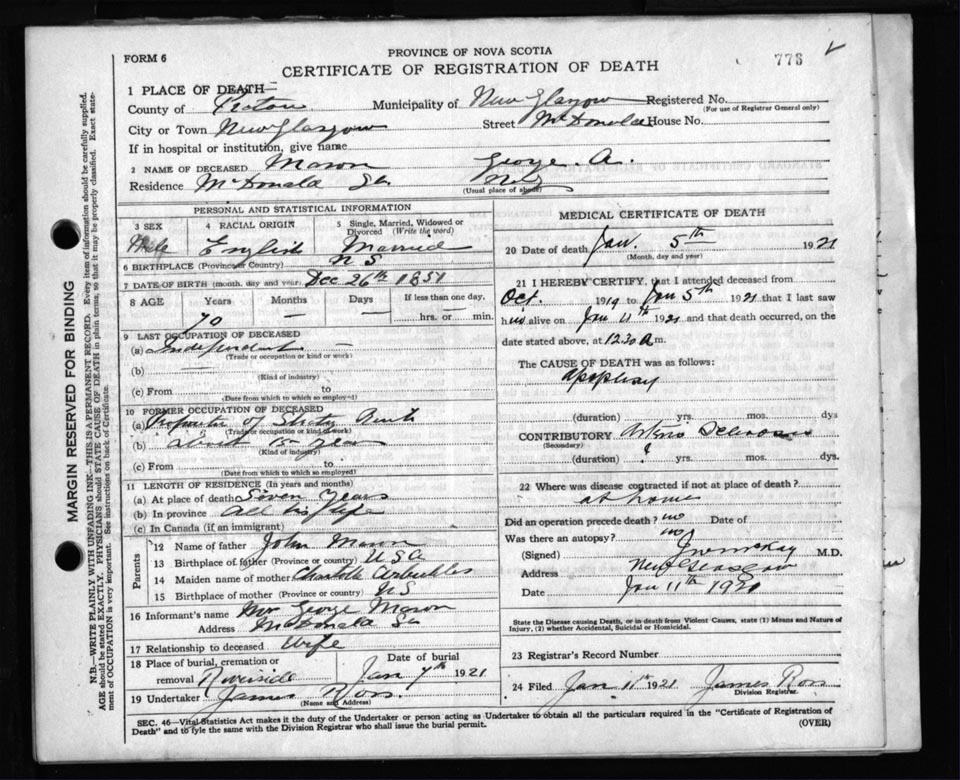 PROVINCE OF NOVA SCOTIA
FORM 6
773
CERTIFICATE OF REGISTRATION OF DEATH
1 PLACE OF DEATH
County of Pictou Municipality of New Glasgow Registered No.
(For use of Registrar General only)
City or Town New Glasgow Street McDonald House No.
If in hospital or institution, give name
2 NAME OF DECEASED Mason George. A.
Residence McDonald St. N. G.
(Usual place of abode)
PERSONAL AND STATISTICAL INFORMATION
3 SEX 4 RACIAL ORIGIN 5 Single, Married, Widowed or Divorced (Write the word)
Male English Married
6 BIRTHPLACE (Province or Country) N S
7 DATE OF BIRTH (month, day and year) Dec 26th 1851
8 AGE Years Months Days If less than one day,
70 — — hrs. or min.
9 LAST OCCUPATION OF DECEASED
(a) Independent —
(Trade or occupation or kind of work)
(b) —
(Kind of industry)
(c) From to
(Date from which to which so employed)
10 FORMER OCCUPATION OF DECEASED
(a) Proprietor of Skating Rink
(Trade or occupation or kind of work)
(b) about 15 years
(Kind of industry)
(c) From to
(Date from which to which so employed)
11 LENGTH OF RESIDENCE (In years and months)
(a) At place of death Seven Years
(b) In province All his life
(c) In Canada (if an immigrant)
Parents
12 Name of father John Mason
13 Birthplace of father (Province or country) USA
14 Maiden name of mother Charlotte Arbuckles
15 Birthplace of mother (Province or country) NS
16 Informant's name Mrs George Mason
Address McDonald St.
17 Relationship to deceased Wife
18 Place of burial, cremation or removal Riverside Date of burial Jan 7th 1921
19 Undertaker James Ross
(Name and Address)
MEDICAL CERTIFICATE OF DEATH
20 Date of death Jan. 5th 1921
(Month, day and year)
21 I HEREBY CERTIFY, that I attended deceased from
Oct. 1919 to Jan 5th 1921 that I last saw
him alive on Jan 11th 1921 and that death occurred, on the
date stated above, at 12.30 A m.
The CAUSE OF DEATH was as follows:
Apoplexy
(duration) yrs. mos. dys
CONTRIBUTORY Arterio Sclerosis
(Secondary)
(duration) ? yrs. mos. dys.
22 Where was disease contracted if not at place of death?
at home
Did an operation precede death? no Date of
Was there an autopsy? no
(Signed) McKay M.D.
Address New Glasgow
Date Jan 11th 1921
State the Disease causing Death, or in death from Violent Causes, state (1) Means and Nature of
Injury, (2) whether Accidental, Suicidal or Homicidal.
23 Registrar's Record Number
24 Filed Jan 11th 1921 James Ross
Division Registrar.
SEC. 46—Vital Statistics Act makes it the duty of the Undertaker or person acting as Undertaker to obtain all the particulars required in the "Certificate of Registration of
Death" and to fyle the same with the Division Registrar who shall issue the burial permit.
(OVER)
MARGIN RESERVED FOR BINDING
N.B.—WRITE PLAINLY WITH UNFADING INK—THIS IS A PERMANENT RECORD. Every item of information should be carefully supplied.
AGE should be stated EXACTLY. PHYSICIANS should STATE CAUSE OF DEATH in plain terms, so that it may be properly classified. Exact state-
ment of OCCUPATION is very important. See instructions on back of Certificate.